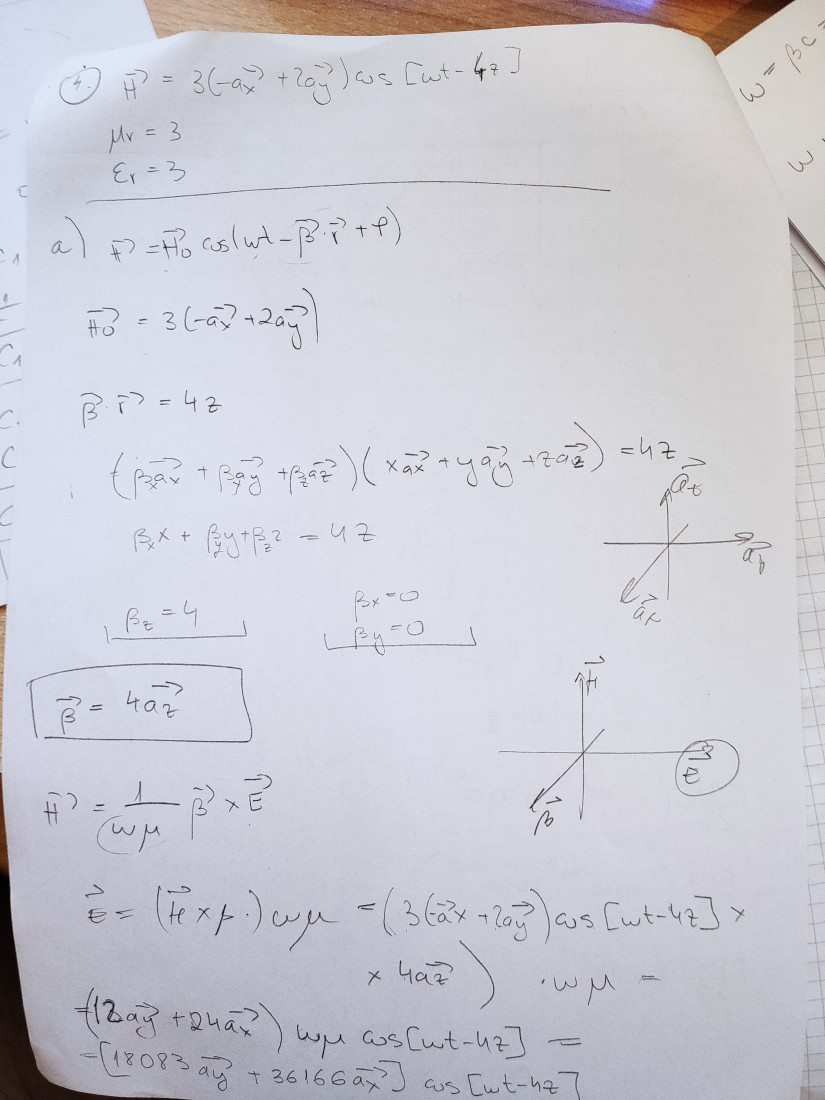 4. H⃗ = 3(-a⃗x + 2a⃗y) cos [ωt - 4z]
μr = 3
εr = 3
a) H⃗ = H⃗o cos(ωt - β⃗·r⃗ + φ)
H⃗o = 3(-a⃗x + 2a⃗y)
β⃗·r⃗ = 4z
(βx a⃗x + βy a⃗y + βz a⃗z)(x a⃗x + y a⃗y + z a⃗z) = 4z
βx x + βy y + βz z = 4z
βz = 4
βx = 0
βy = 0
a⃗z
a⃗y
a⃗x
β⃗ = 4a⃗z
H⃗
E⃗
β⃗
H⃗ = 1/ωμ β⃗ × E⃗
E⃗ = (H⃗ × β) ωμ = (3(-a⃗x + 2a⃗y) cos [ωt - 4z] ×
× 4a⃗z) · ωμ =
=(12a⃗y + 24a⃗x) ωμ cos[ωt - 4z] =
=[18083 a⃗y + 36166 a⃗x] cos [ωt - 4z]
ω = βc =
ω